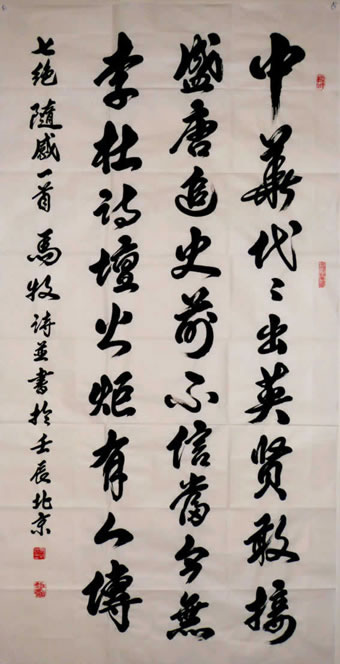 中華代〻出英賢敢接
盛唐追史前不信當今無
李杜詩壇火炬有人傳
七絕隨感一首 馬牧詩並書於壬辰北京